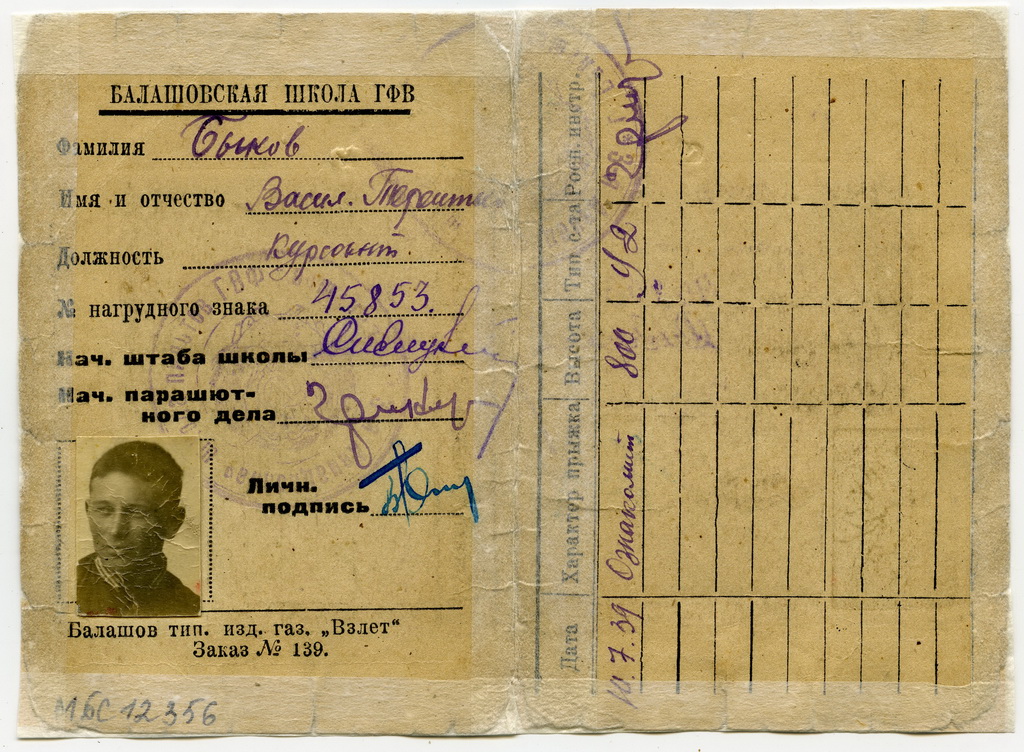 БАЛАШОВСКАЯ ШКОЛА ГФВ
Фамилия Быков
Имя и отчество Васил.
Должность Курсант.
№ нагрудного знака 45853.
Нач. штаба школы
Нач. парашют-
ного дела
Личн.
подпись
Балашов тип. изд. газ. „Взлет“
Заказ № 139.
МБС 12356
Дата Характер прыжка Высота Тип с-та Росп. инстр.
10.7.39 Ознакомит 800 У2